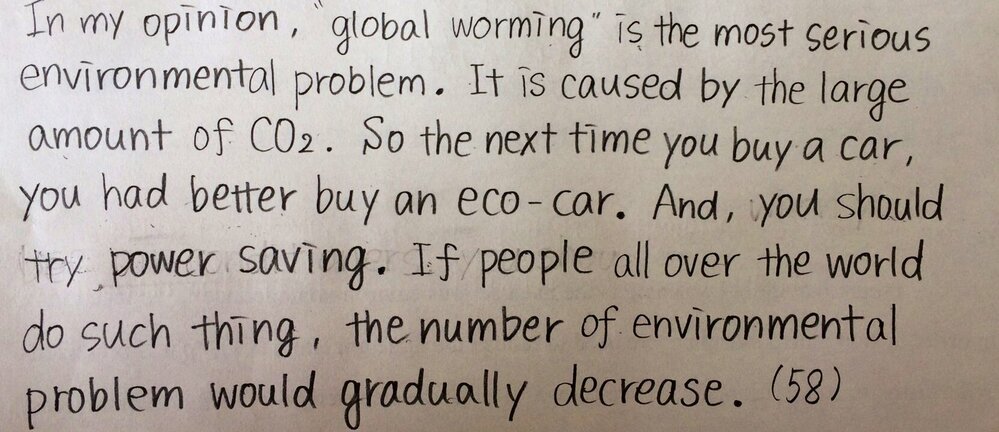 In my opinion, "global worming" is the most serious
environmental problem. It is caused by the large
amount of CO2. So the next time you buy a car,
you had better buy an eco-car. And, you should
try power saving. If people all over the world
do such thing, the number of environmental
problem would gradually decrease. (58)